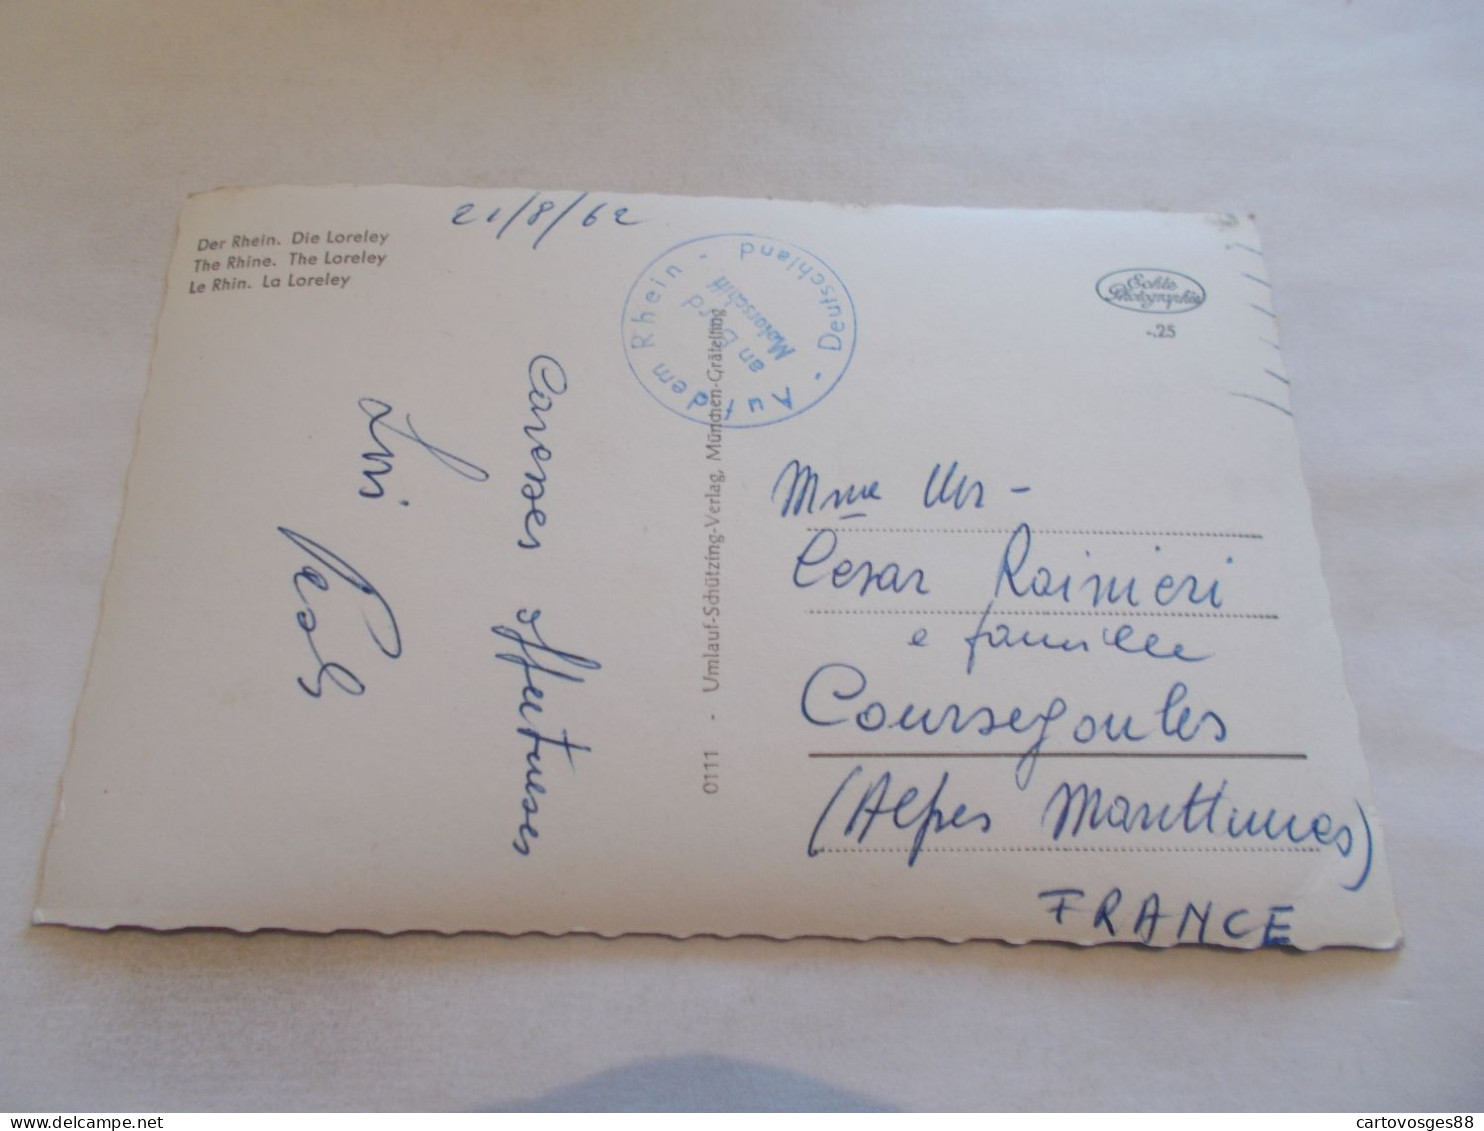 Der Rhein. Die Loreley
The Rhine. The Loreley
Le Rhin. La Loreley
21/8/62
Auf dem Rhein - Deutschland -
an Bord
Motorschiff
Echte
Photographie
-.25
Careses affectueuses
0111 - Umlauf-Schützing-Verlag, München-Gräfelfing
Mme Mr -
Cesar Rainieri
e famille
Coursegoules
(Alpes Maritimes)
FRANCE
cartovosges88